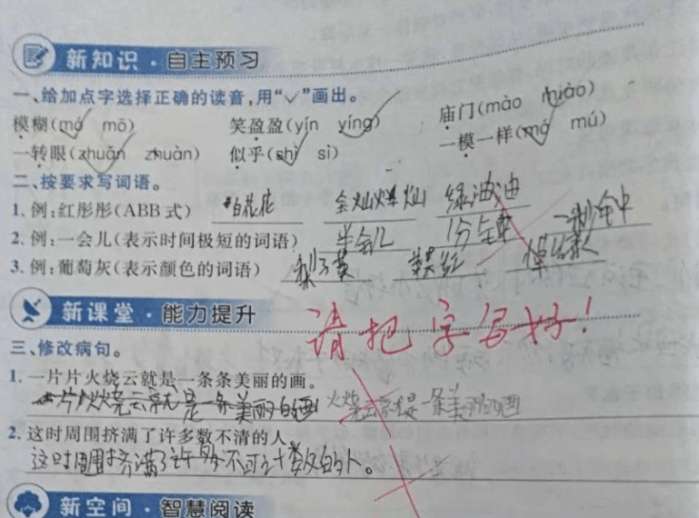 新知识·自主预习
一、给加点字选择正确的读音,用“✓”画出。
模糊(mó mō) 笑盈盈(yín yíng) 庙门(mào miào)
一转眼(zhuǎn zhuàn) 似乎(shì sì) 一模一样(mó mú)
二、按要求写词语。
1. 例:红彤彤(ABB式) 白花花 金灿灿 绿油油
2. 例:一会儿(表示时间极短的词语) 半会儿 1分钟 一秒钟
3. 例:葡萄灰(表示颜色的词语) 梨子黄 枣红
请把字写好!
新课堂·能力提升
三、修改病句。
1. 一片片火烧云就是一条条美丽的画。
火烧云就是一条美丽的画
2. 这时周围挤满了许多数不清的人。
这时周围挤满了许多不可计数的人。
新空间·智慧阅读